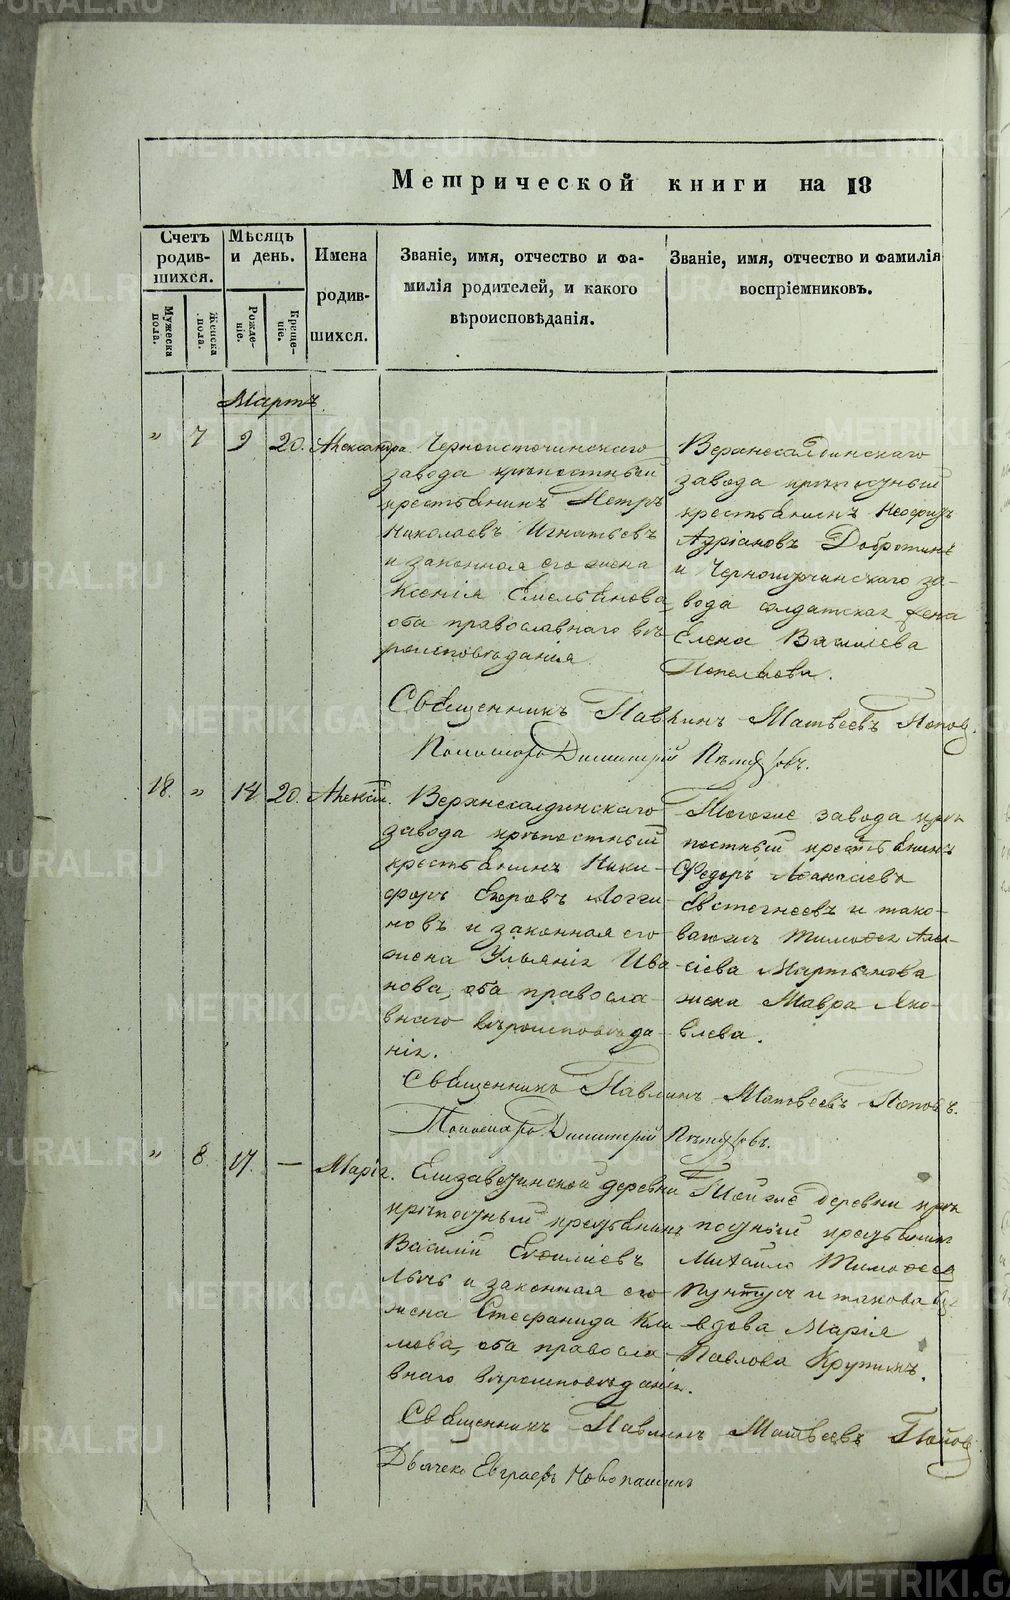 Метрической книги на 18
Счетъ родив-шихся.
Мѣсяцъ и день.
Имена родив-шихся.
Званіе, имя, отчество и фа-
милія родителей, и какого
вѣроисповѣданія.
Званіе, имя, отчество и фамилія
воспріемниковъ.
Мужеска пола.
Женска пола.
Рожде-ніе.
Креще-ніе.
Мартъ.
" 7 9 20. Александра
Черноисточинскаго
завода крѣпостный
крестьянинъ Петръ
Николаевъ Игнатьевъ
и законная его жена
Ксенія Емельянова,
оба православнаго вѣ
роисповѣданія.
Верхнесалдинскаго
завода крѣпостный
крестьянинъ
Адріановъ Добротинъ
и Черноисточинскаго за-
вода солдатская жена
Елена Василіева
Священникъ Павлинъ Матвеевъ Попов.
Пономарь Димитрій
18. " 14 20. Алексій.
Верхнесалдинскаго
завода крѣпостный
крестьянинъ Ники-
форъ Егоровъ Логги-
новъ и законная его
жена Ульянія Ива
нова, оба правосла-
внаго вѣроисповѣда
нія.
Тогоже завода крѣ
постный крестьянинъ
Федоръ Афанасіевъ
Евстегнеевъ и тако-
ваго Тимофея Алек-
сіева Мартьянова
жена Мавра Яко-
влева.
Священникъ Павлинъ Матвеевъ Поповъ.
Пономарь Димитрій
" 8. 17. — Марія.
Елизаветинской деревни
крѣпостный крестьянинъ
Василій
и законная его
жена Стефанида Кли
мова, оба правосла
внаго вѣроисповѣданія.
Той же деревни крѣ
постный крестьянинъ
Михайло Тимофеев
и такова
вдова Марія
Павлова
Священникъ Павлинъ Матвеевъ Попов
Дьячекъ Евграфъ Новопашинъ
METRIKI.GASO-URAL.RU